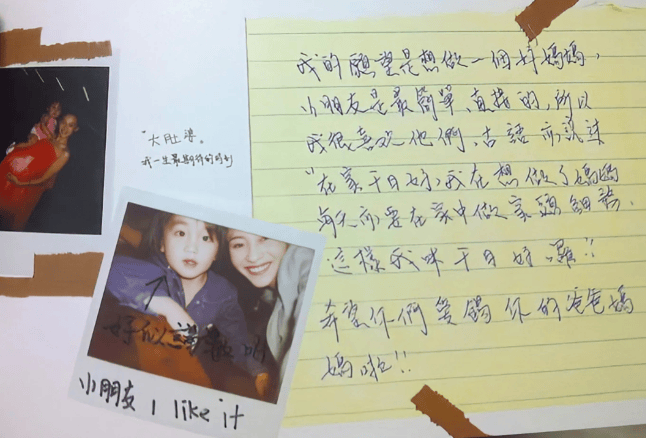 我的願望是想做一個好媽媽，
小朋友是最簡單、直接的，所以
我很喜欢他們，古話亦說過
"在家千日好，我在想做了媽媽
每天亦要在家中做家頭細務，
這樣我咪千日好囉!!
希望你們愛錫你的爸爸媽
媽啦!!
"大肚婆。
我一生最期待的時刻
好似
小朋友 I like it